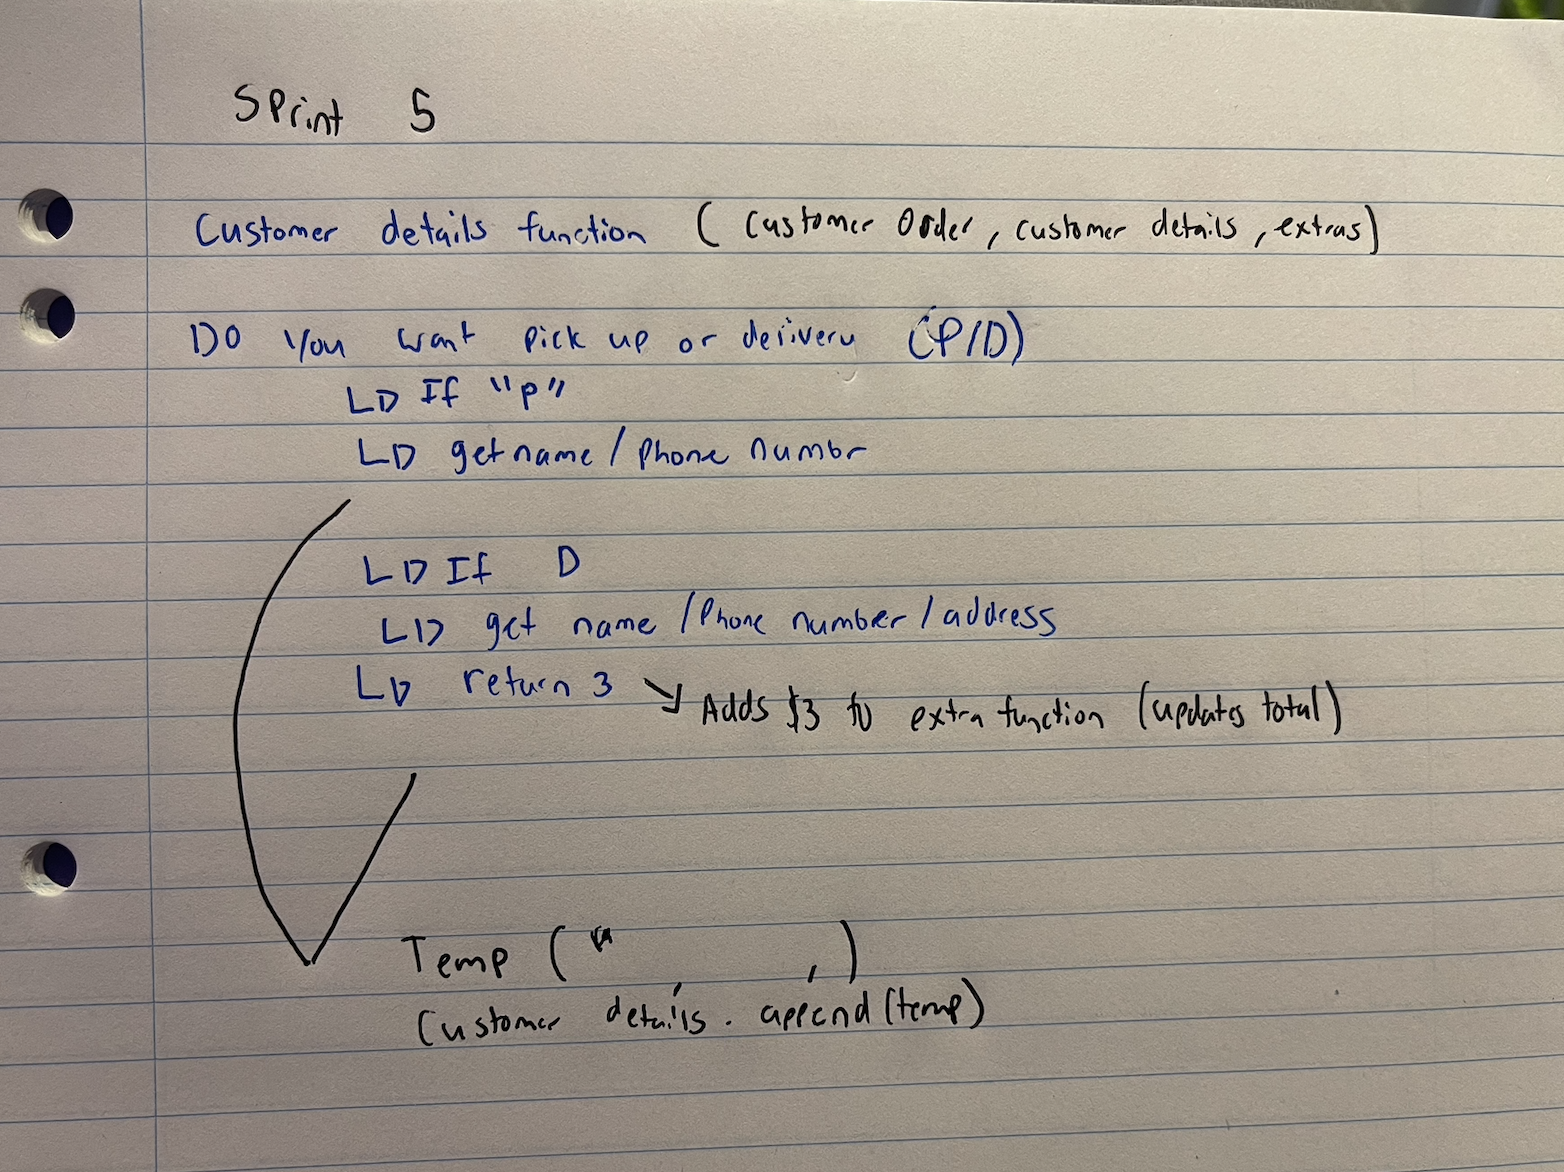 Sprint 5
Customer details function ( Customer Order, customer details, extras)
Do you want pick up or delivery (P/D)
If "p"
get name / phone numbr
If D
get name / Phone number / address
return 3
Adds $3 to extra function (updates total)
Temp (" , )
Customer details. append (temp)